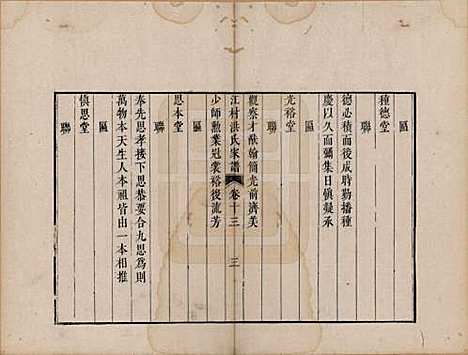 種德堂
匾
聯
德必積而後成時勤播種
慶以久而彌集日慎凝承
光裕堂
匾
聯
觀察才猷翰簡光前濟美
江村洪氏家譜 卷十三 三
少師勲業冠裳裕後流芳
思本堂
匾
聯
奉先思孝接下思恭要合九思爲則
萬物本天生人本祖皆由一本相推
慎思堂
匾
聯